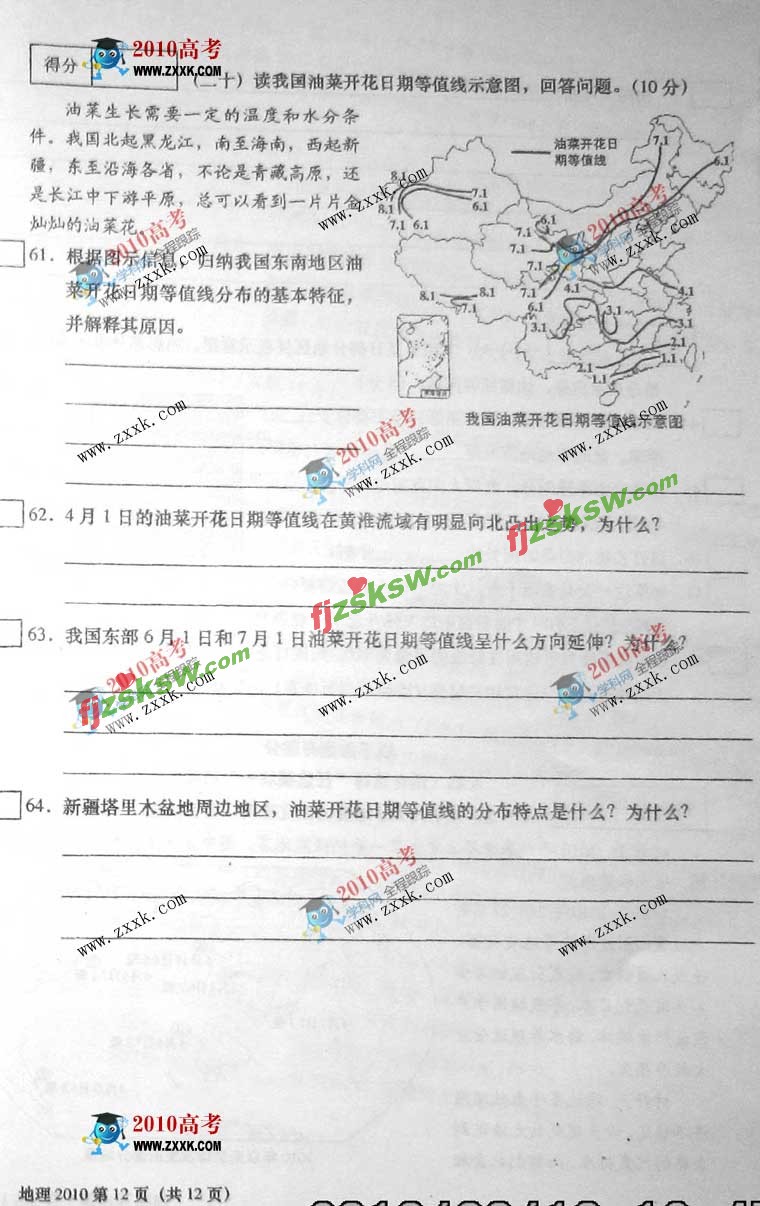 2010高考
WWW.ZXXK.COM
得分
(二十) 读我国油菜开花日期等值线示意图，回答问题。(10分)
油菜生长需要一定的温度和水分条
件。我国北起黑龙江，南至海南，西起新
疆，东至沿海各省，不论是青藏高原，还
是长江中下游平原，总可以看到一片片金
灿灿的油菜花。
油菜开花日
期等值线
7.1
6.1
8.1
8.1
7.1
6.1
7.1 6.1
6.1
7.1
7.1
7.1
6.1
8.1
8.1
7.1
7.1
6.1
4.1
4.1
3.1
3.1
3.1
2.1
2.1
1.1
1.1
我国油菜开花日期等值线示意图
61．根据图示信息，归纳我国东南地区油
菜开花日期等值线分布的基本特征，
并解释其原因。
www.zxxk.com
2010高考
学科网 全程跟踪
www.zxxk.com
www.zxxk.com
62．4月1日的油菜开花日期等值线在黄淮流域有明显向北凸出之势，为什么？
fjzsksw.com
fjzsksw.com
63．我国东部6月1日和7月1日油菜开花日期等值线呈什么方向延伸？为什么？
2010高考
fjzsksw.com
www.zxxk.com
www.zxxk.com
2010高考
学科网 全程跟踪
www.zxxk.com
64．新疆塔里木盆地周边地区，油菜开花日期等值线的分布特点是什么？为什么？
www.zxxk.com
2010高考
学科网 全程跟踪
www.zxxk.com
www.zxxk.com
2010高考
WWW.ZXXK.COM
地理2010 第12页（共12页）